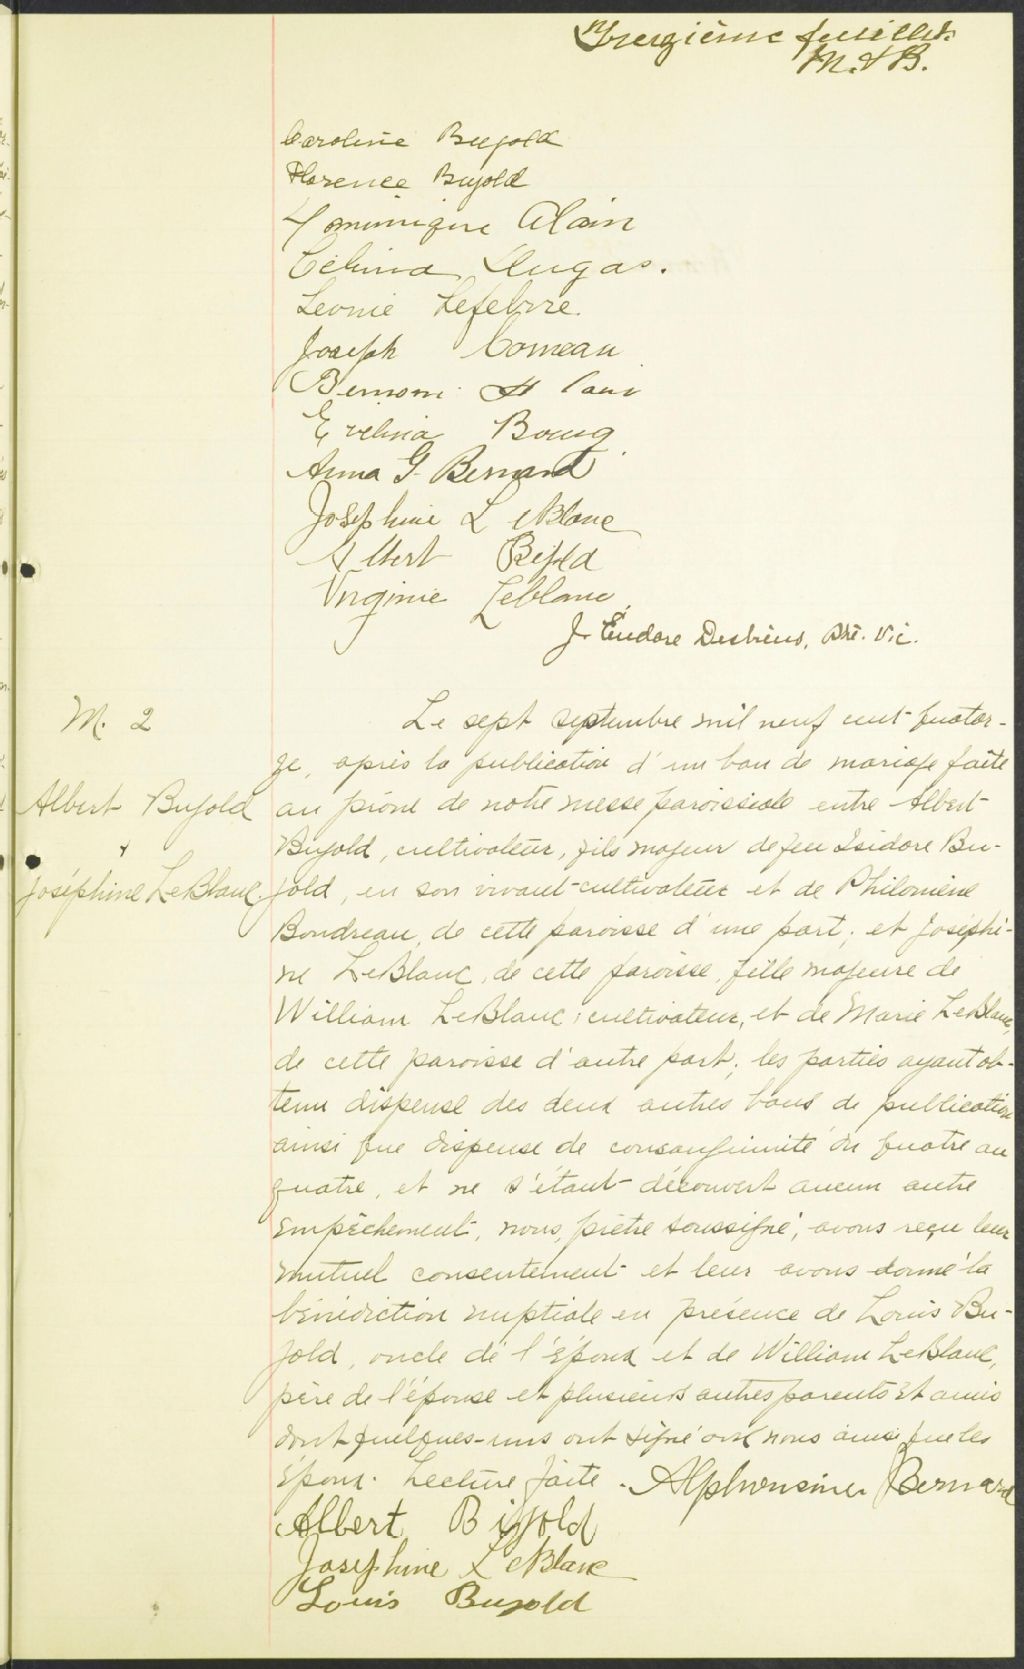 Treizième feuillet.
M. & B.
Caroline Bujold
Florence Bujold
Dominique Alain
Célina Dugas.
Leonie Lefebvre.
Joseph Comeau
Evelina Bourg
Anna G. Bernard
Joséphine LeBlanc
Albert Bijold
Virginie Leblanc
J. Eudore Desbiens, Ptre. Vic.
M. 2
Albert Bujold
&
Joséphine LeBlanc.
Le sept septembre mil neuf cent quator-
ze, après la publication d'un ban de mariage faite
au prône de notre messe paroissiale entre Albert
Bujold, cultivateur, fils majeur de feu Isidore Bu-
jold, en son vivant cultivateur et de Philomène
Boudreau, de cette paroisse d'une part; et Joséphi-
ne LeBlanc, de cette paroisse, fille majeure de
William LeBlanc, cultivateur, et de Marie LeBlanc,
de cette paroisse d'autre part; les parties ayant ob-
tenu dispense des deux autres bans de publication
ainsi que dispense de consanguinité du quatre au
quatre, et ne s'étant découvert aucun autre
empêchement, nous, prêtre soussigné, avons reçu leur
mutuel consentement et leur avons donné la
bénédiction nuptiale en présence de Louis Bu-
jold, oncle de l'époux et de William LeBlanc,
père de l'épouse et plusieurs autres parents et amis
dont quelques-uns ont signé avec nous ainsi que les
époux. Lecture faite. Alphonsine Bernard
Albert Bijold
Josephine LeBlanc
Louis Bujold